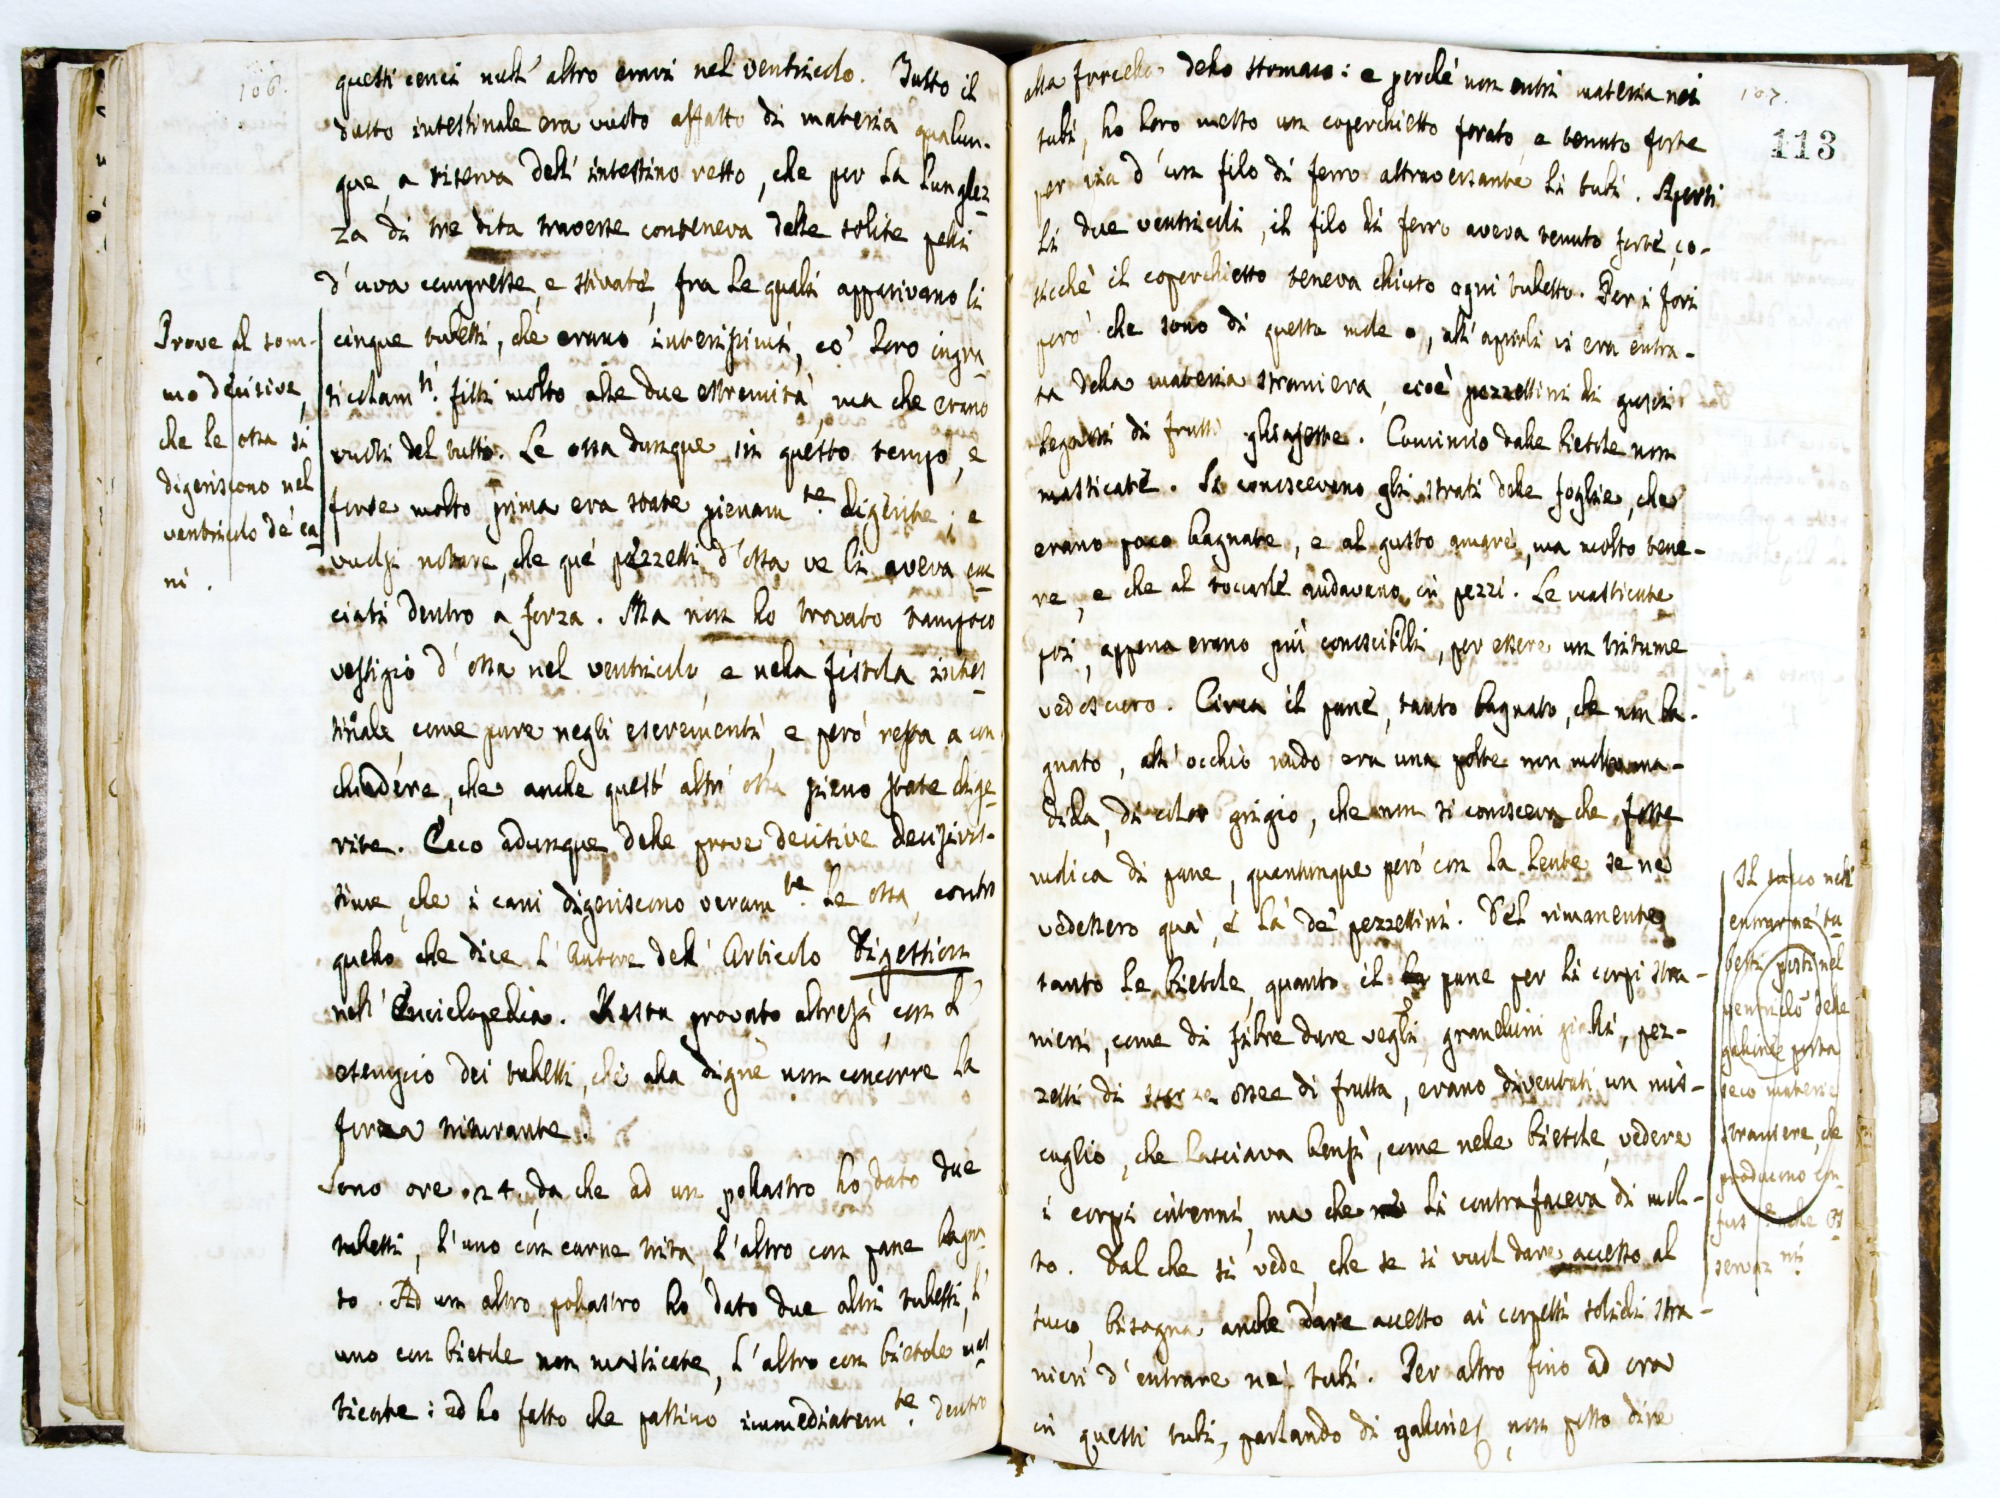 106.
questi cenci null' altro eravi nel ventricolo. Tutto il
dutto intestinale era vuoto affatto di materia qualun-
que, a riserva dell' intestino retto, che per la lunghez-
za di tre dita traverse conteneva delle solite pelli
d'uva compresse, e stivate, fra le quali apparivano li
cinque tubetti, che erano interissimi, co' loro ingra-
ticolam.ti fitti molto alle due estremità, ma che erano
vuoti del tutto. Le ossa dunque in questo tempo, e
forse molto prima era state pienam.te digerite; e
vuolsi notare, che que' pezzetti d'ossa ve li aveva cac-
ciati dentro a forza. Ma non ho trovato tampoco
vestigio d'ossa nel ventricolo, e nella fistola intes-
tinale, come pure negli escrementi, e però resta a con-
chiudere, che anche quest' altri ossa sieno state dige-
rite. Ecco adunque delle prove decisive decisivis-
sime, che i cani digeriscono veram.te le ossa, contro
quello che dice l'Autore dell' Articolo Digestion
nell' Enciclopedia. Resta provato altresì, con l'
esempio dei tubetti, che alla dig.ne non concorre la
forza triturante.
Sono ore 24 da che ad un pollastro ho dato due
tubetti, l'uno con carne trita, l'altro con pane bagna-
to. Ad un altro pollastro ho dato due altri tubetti, l'
uno con bietole non masticate, l'altro con bietole mas-
ticate: ed ho fatto che passino immediatam.te dentro
Prove al som-
mo decisive,
che le ossa si
digeriscono nel
ventricolo de' ca-
ni.
107.
113
alla forcella dello stomaco: e perchè non entri materia nei
tubi, ho loro messo un coperchietto forato, e tenuto forte
per via d'un filo di ferro attraversante li tubi. Aperti
li due ventricoli, il filo di ferro aveva tenuto forte, co-
sicchè il coperchietto teneva chiuso ogni tubetto. Per i fori
però che sono di questa mole o, all' aprirli vi era entra-
ta della materia straniera, cioè pezzettini di gusci
legnosi di frutti. Comincio dalle bietole non
masticate. Si conoscevano gli strati delle foglie, che
erano poco bagnate, e al gusto amare, ma molto tene-
re, e che al toccarle andavano in pezzi. Le masticate
poi, appena erano più conoscibili, per essere un tritume
verdescuro. Circa il pane, tanto bagnato, che non ba-
gnato, all' occhio nudo era una polte non molto ma-
dida, di color grigio, che non si conosceva che fosse
molica di pane, quantunque però con la lente se ne
vedessero quà, e là de' pezzettini. Del rimanente
tanto le bietole, quanto il pane per li corpi stra-
nieri, come di fibre dure vegli granellini gialli, pez-
zetti di scorze ossee di frutta, erano diventati un mis-
cuglio, che lasciava bensì, come nelle bietole, vedere
i corpi interni, ma che li contrafaceva di mol-
to. Dal che si vede, che se si vuol dare accesso al
succo, bisogna anche dare accesso ai corpetti solidi stra-
nieri d'entrare ne' tubi. Per altro fino ad ora
in questi tubi, parlando di galline, non posso dire
Il succo nell'
entrar ne' tu-
betti posti nel
ventricolo delle
galline porta
seco materie
straniere, che
producono con-
fus.e nelle os-
servaz.ni